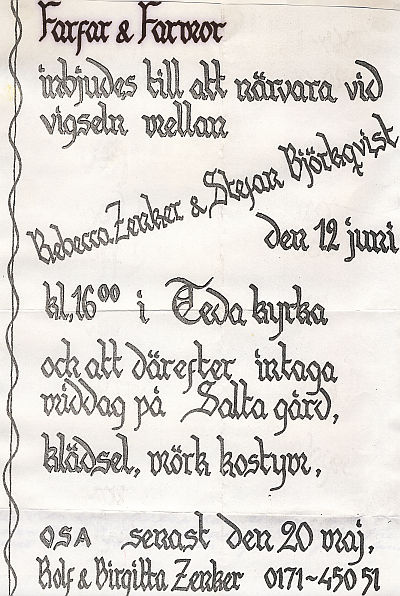 Farfar & Farmor
inbjudes till att närvara vid
vigseln mellan
Rebecca Zenker & Stefan Björkqvist
den 12 juni
kl, 16⁰⁰ i Teda kyrka
och att därefter intaga
middag på Salta gård,
klädsel, mörk kostym,
OSA senast den 20 maj,
Rolf & Birgitta Zenker 0171~450 51